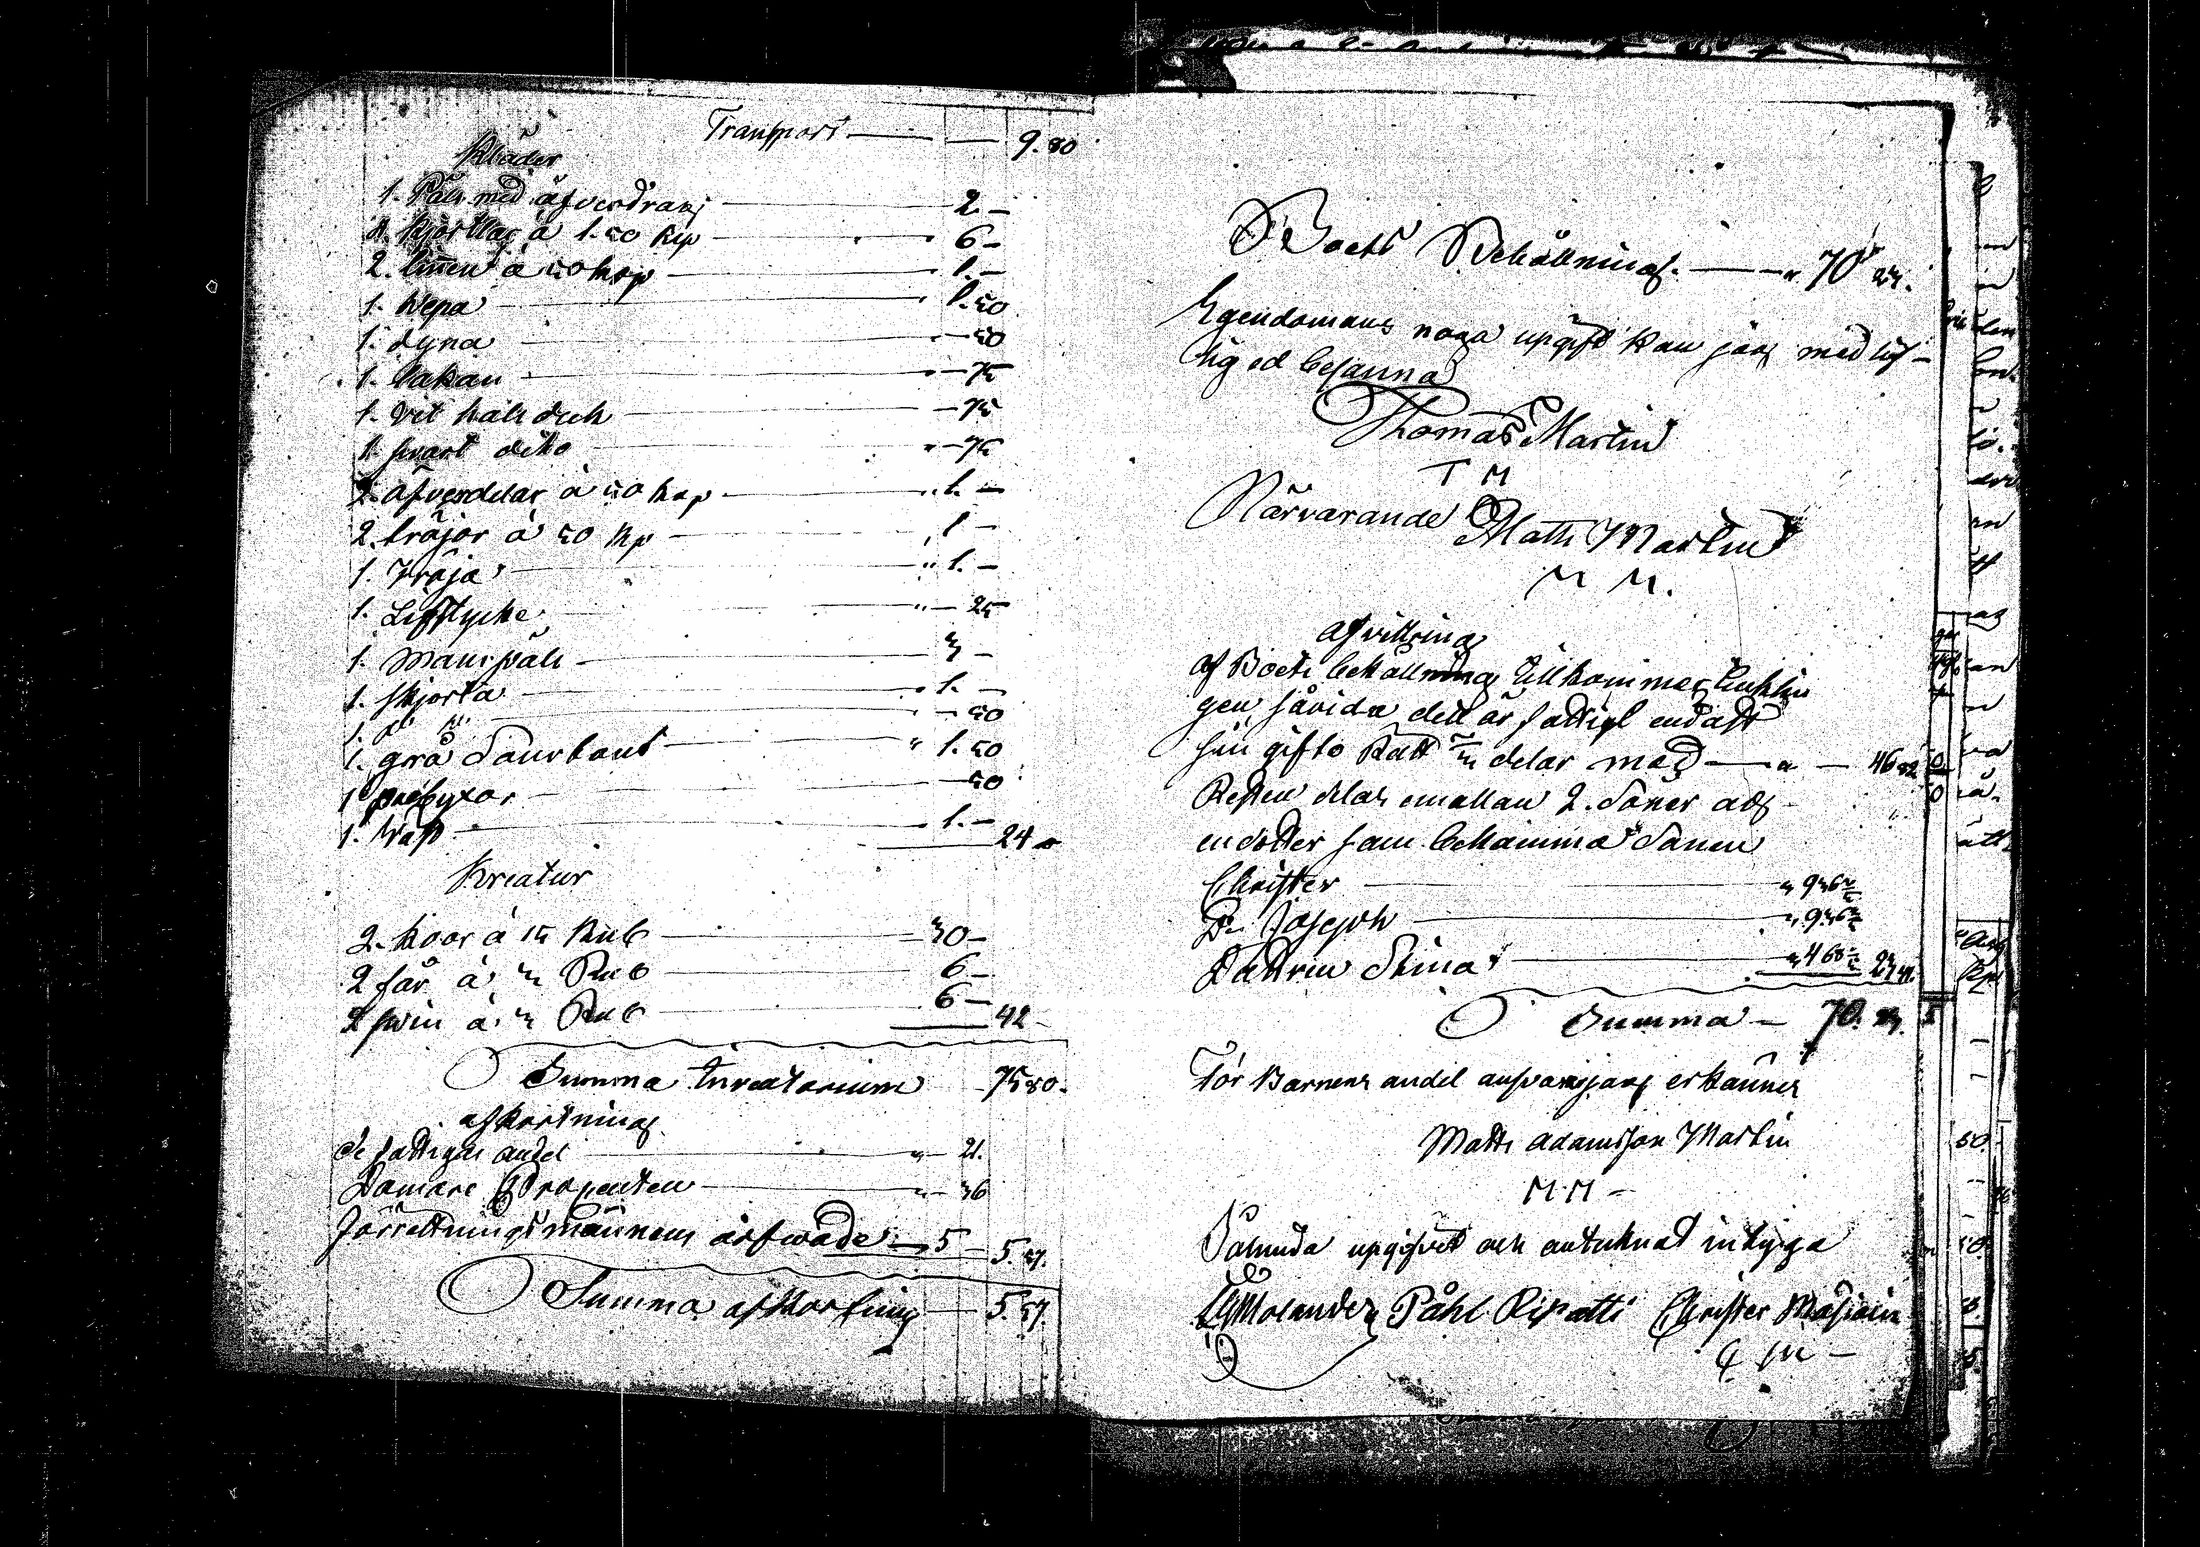 Transport — 9. 80
Kläder
1. Päls med öfverdrag — 2. —
4. kjortlar à 1. 50 kop — 6 —
2. linnen à 50 kop — 1. —
1. wepa — 1. 50
1. dyna — 50
1. lakan — 75
1. vit halsduk — 75
1. svart dito — 75
2. öfverdelar à 50 kop — 1. —
2. tröjor à 50 kop — 1 —
1. Tröja — 1. —
1. Lifstycke — 25
1. Manspäls — 3 —
1. skjorta — 1. —
1. — 50
1. grå Surtout — 1. 50
1 byxor — 50
1. Wäst — 1. — 24
Kreatur
2. koor à 15 Rub — 30 —
2 får à 3 Rub — 6 —
2 swin à 3 Rub — 6 — 42 —
Summa Inventarium 75 80.
afkortning
de fattigas andel — 21.
Domare Expeditien — 36
förrettnings männens arfwode — 5 — 5. 57.
Summa afkortning — 5. 57.
Boets Behållning — 70 23.
Egendomens noga upgift kan jag med lif-
lig ed besanna
Thomas Martin
T M
Närvarande Matts Martin
M M.
afvittring
af Boets behållning tillkommer Enklin
gen såvida dett är fattigt endast
sin gifto Rätt 2/3 delar med — 46 82
Resten delas emellan 2. söner och
en dotter som bekomma Sonen
Christer — 9 36
Do Joseph — 9 36
Dottren Stina — 4 68 23 41.
Summa — 70. 23.
För Barnens andel ansvarig jag erkänner
Matts Adamsson Martin
M M —
Sålunda upgifvet och antecknat intyga
Molander Påhl Ripatti Christer
C M —